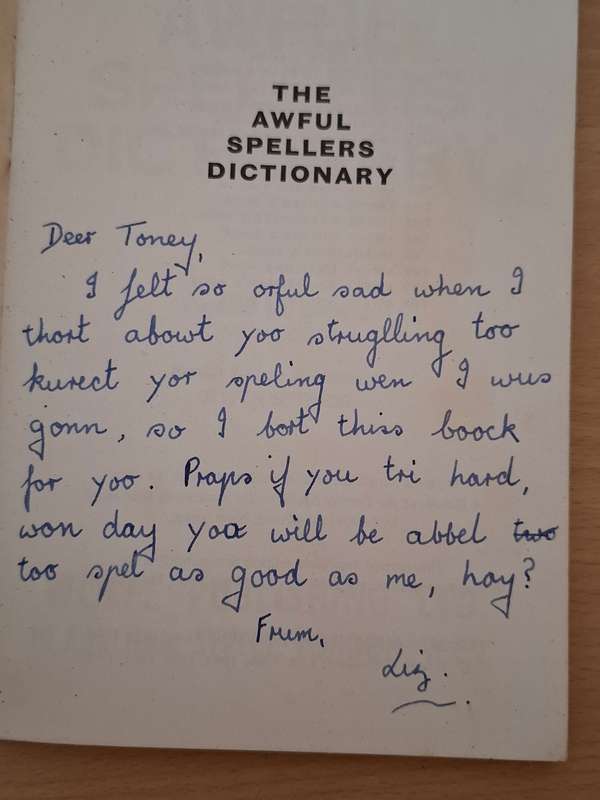 THE
AWFUL
SPELLERS
DICTIONARY
Deer Toney,
I felt so orful sad when I
thort abowt yoo struglling too
kurect yor speling wen I wus
gonn, so I bort thiss boock
for yoo. Praps if you tri hard,
won day yoo will be abbel two
too spel as good as me, hay?
Frum,
Liz.